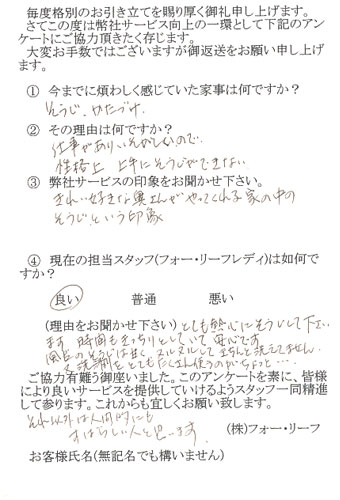 毎度格別のお引き立てを賜り厚く御礼申し上げます。
さてこの度は幣社サービス向上の一環として下記のアン
ケートにご協力頂きたく存じます。
大変お手数ではございますが御返送をお願い申し上げ
ます。
① 今までに煩わしく感じていた家事は何ですか？
そうじ、かたづけ
② その理由は何ですか？
仕事がありいそがしいので、
性格上 上手にそうじができない
③ 弊社サービスの印象をお聞かせ下さい。
きれい好きな奥さんがやってくれる家の中の
そうじ、という印象
④ 現在の担当スタッフ(フォー・リーフレディ)は如何で
すか？
良い 普通 悪い
(理由をお聞かせ下さい) とても熱心にそうじして下さい
ます 時間もきっちりとしていて 安心です
風呂のそうじは甘く ヌルヌルして きちんと洗えてません
又洗剤をとてもたくさん使うのがちょっと…
ご協力有難う御座いました。このアンケートを素に、皆様
により良いサービスを提供していけるようスタッフ一同精進
して参ります。これからも宜しくお願い致します。
それ以外は人間的にも
すばらしい人と思います。
(株)フォー・リーフ
お客様氏名(無記名でも構いません)